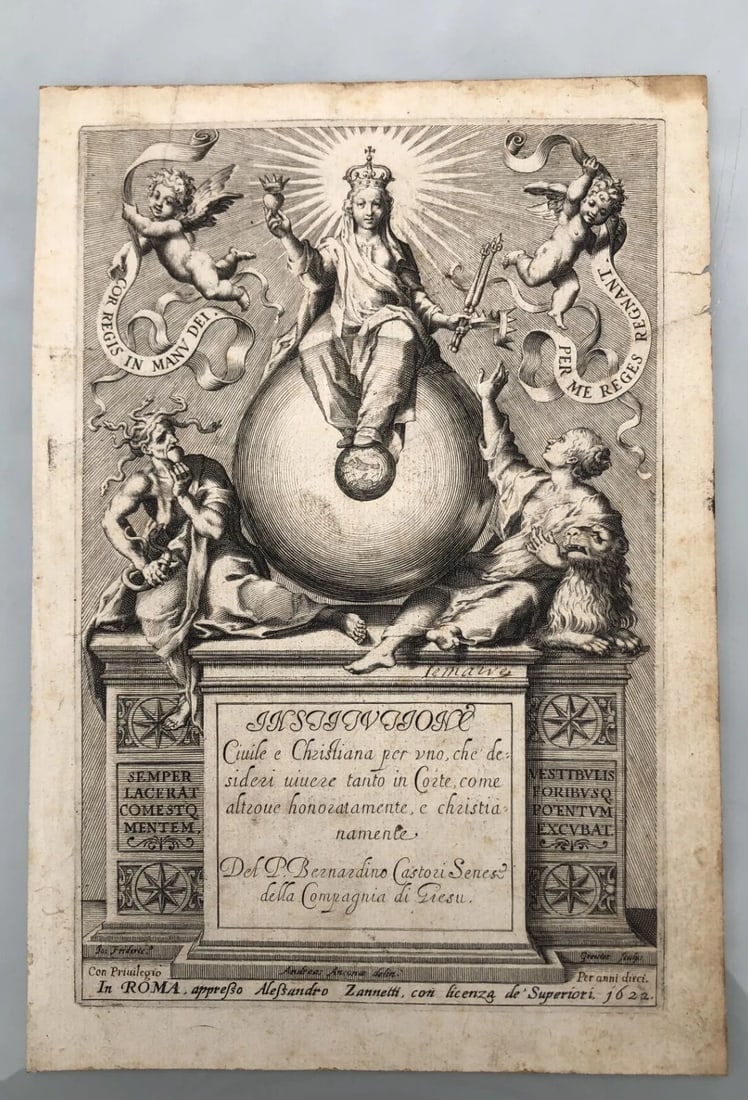 COR REGIS IN MANV DEI.
PER ME REGES REGNANT.
INSTITVTIONE
Ciuile e Christiana per vno, che de-
sideri uiuere tanto in Corte, come
altroue honoratamente, e christia-
namente
Del P. Bernardino Castori Senese
della Compagnia di Giesu.
SEMPER
LACERAT
COMESTQ
MENTEM.
VESTIBVLIS
FORIBVSQ
POTENTVM
EXCVBAT.
Greuter sculps.
Andreas Anconæ delin.
Con Priuilegio
Per anni dieci.
In ROMA, appresso Alessandro Zannetti, con licenza de' Superiori. 1622.